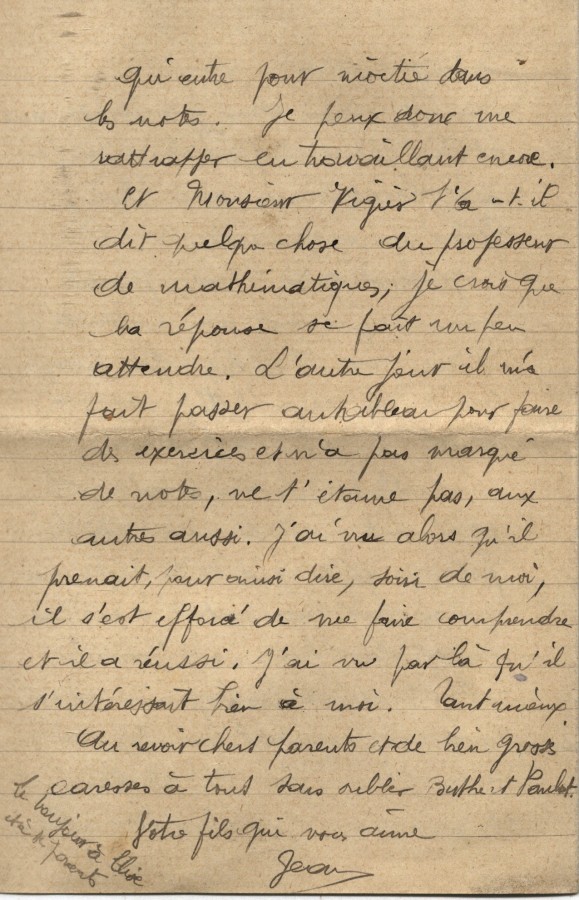 qui entre pour moitié dans
les notes. Je peux donc me
rattrapper en travaillant encore.
Et Monsieur Vigier t'a-t-il
dit quelque chose du professeur
de mathématiques, je crois que
la réponse se fait un peu
attendre. L'autre jour il m'a
fait passer au tableau pour faire
des exercices et n'a pas marqué
de notes, ne t'étonne pas, aux
autres aussi. J'ai vu alors qu'il
prenait, pour ainsi dire, soin de moi,
il s'est efforcé de me faire comprendre
et il a réussi. J'ai vu par là qu'il
s'intéressait bien à moi. Tant mieux
Au revoir chers parents et de bien grosses
caresses à tous sans oublier et
Votre fils qui vous aime
Jean
le bonjour à Elise
et à parents